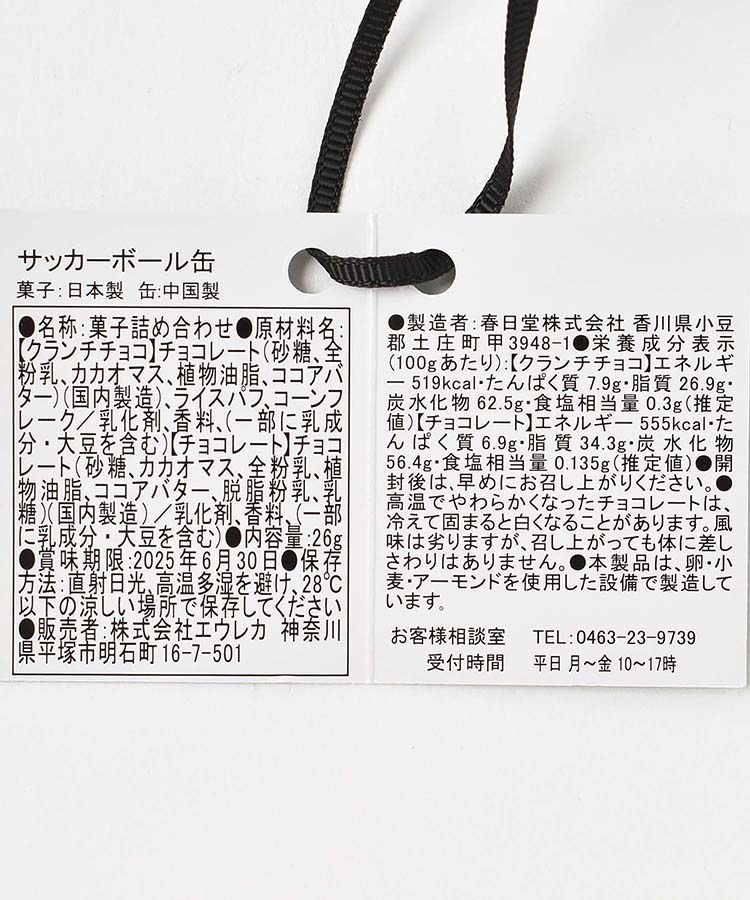 サッカーボール缶
菓子:日本製 缶:中国製
●名称:菓子詰め合わせ●原材料名:
【クランチチョコ】チョコレート(砂糖、全
粉乳、カカオマス、植物油脂、ココアバ
ター)(国内製造)、ライスパフ、コーンフ
レーク／乳化剤、香料、(一部に乳成
分・大豆を含む)【チョコレート】チョコ
レート(砂糖、カカオマス、全粉乳、植
物油脂、ココアバター、脱脂粉乳、乳
糖)(国内製造)／乳化剤、香料、(一部
に乳成分・大豆を含む)●内容量:26g
●賞味期限:2025年6月30日●保存
方法:直射日光、高温多湿を避け、28℃
以下の涼しい場所で保存してください
●販売者:株式会社エウレカ 神奈川
県平塚市明石町16-7-501
●製造者:春日堂株式会社 香川県小豆
郡土庄町甲3948-1●栄養成分表示
(100gあたり):【クランチチョコ】エネルギ
ー519kcal・たんぱく質7.9g・脂質26.9g・
炭水化物62.5g・食塩相当量0.3g(推定
値)【チョコレート】エネルギー555kcal・た
んぱく質6.9g・脂質34.3g・炭水化物
56.4g・食塩相当量0.135g(推定値)●開
封後は、早めにお召し上がりください。●
高温でやわらかくなったチョコレートは、
冷えて固まると白くなることがあります。風
味は劣りますが、召し上がっても体に差し
さわりはありません。●本製品は、卵・小
麦・アーモンドを使用した設備で製造して
います。
お客様相談室 TEL:0463-23-9739
受付時間 平日 月～金 10～17時